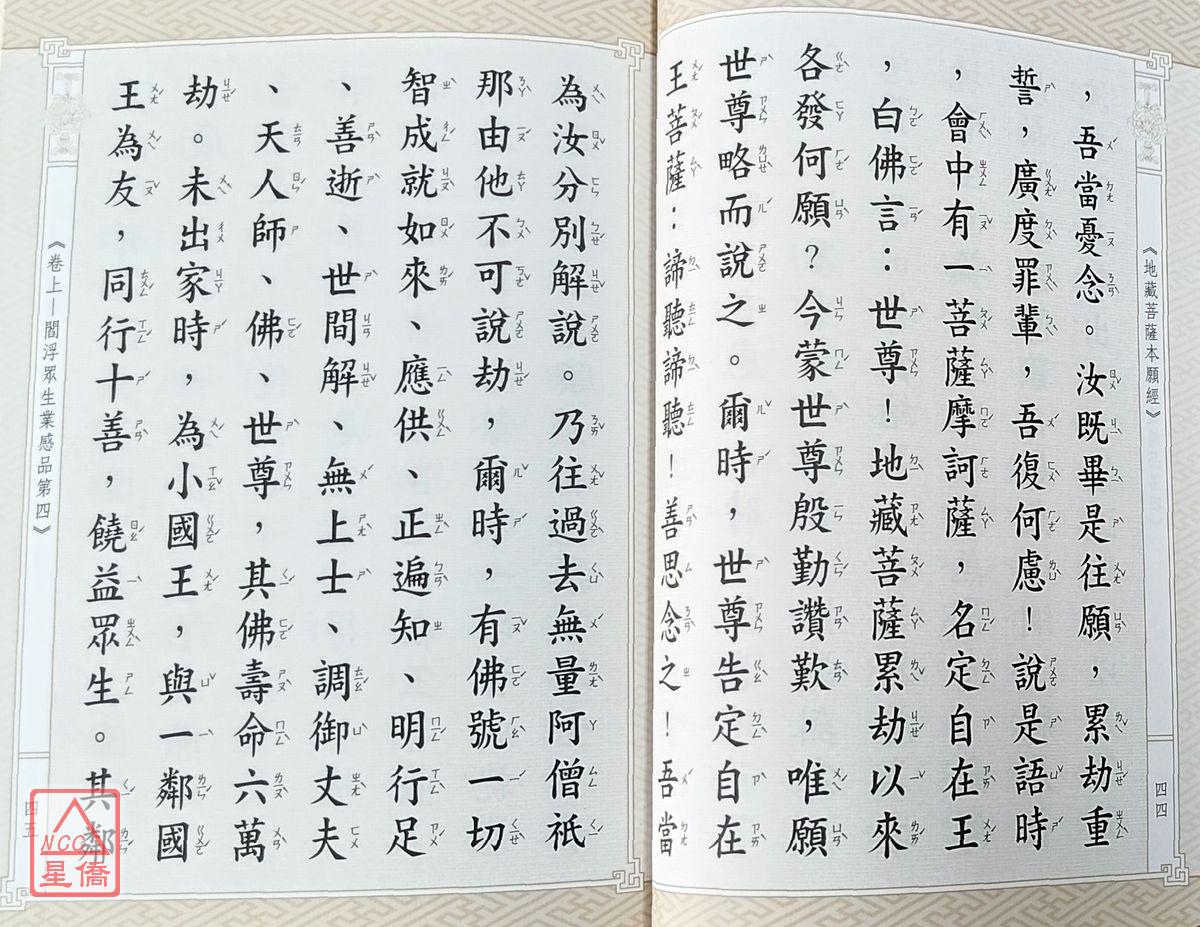 《地藏菩薩本願經》
四四
，吾當憂念。汝既畢是往願，累劫重
誓，廣度罪輩，吾復何慮！說是語時
，會中有一菩薩摩訶薩，名定自在王
，白佛言：世尊！地藏菩薩累劫以來
各發何願？今蒙世尊殷勤讚歎，唯願
世尊略而說之。爾時，世尊告定自在
王菩薩：諦聽諦聽！善思念之！吾當
為汝分別解說。乃往過去無量阿僧祇
那由他不可說劫，爾時，有佛號一切
智成就如來、應供、正遍知、明行足
、善逝、世間解、無上士、調御丈夫
、天人師、佛、世尊，其佛壽命六萬
劫。未出家時，為小國王，與一鄰國
王為友，同行十善，饒益眾生。其鄰
《卷上—閻浮眾生業感品第四》
四五
NCC
星僑